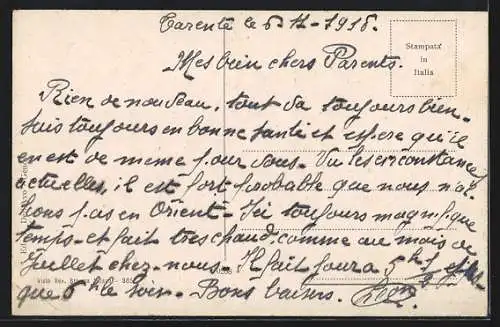 Tarente le 6-11-1918.
Stampata
in
Italia
Mes bien chers Parents.
Rien de nouveau, tout va toujours bien-
suis toujours en bonne santé et espère qu'il
en est de meme pour vous. Vu les circonstances
actuelles, il est fort probable que nous n'al-
lions pas en Orient - Ici toujours magnifique
temps - et fait tres chaud, comme au mois de
Juillet chez-nous. Il fait jour a 5h 1/2
que 5h le soir. Bons baisers.